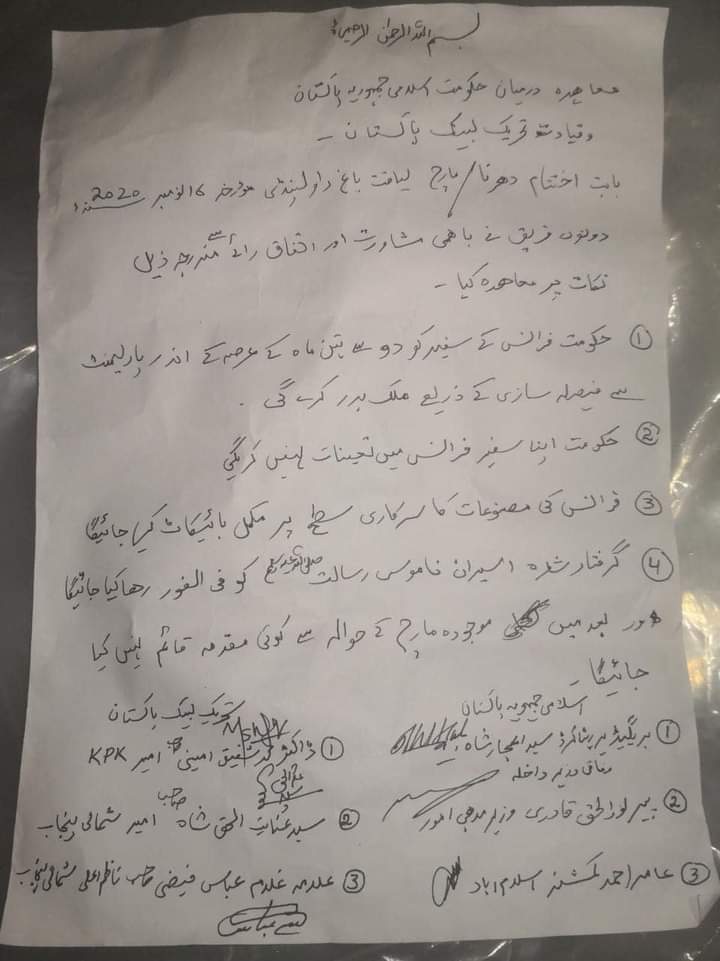 بسم اللہ الرحمن الرحیم
معاہدہ درمیان حکومت اسلامی جمہوریہ پاکستان
و قیادت تحریک لبیک پاکستان ۔
بابت اختتام دھرنا/مارچ لیاقت باغ راولپنڈی مورخہ 16 نومبر 2020
دونوں فریق نے باھمی مشاورت اور اتفاق رائے سے مندرجہ ذیل
نکات پر معاھدہ کیا ۔
① حکومت فرانس کے سفیر کو دو سے تین ماہ کے عرصہ کے اندر پارلیمنٹ
سے فیصلہ سازی کے ذریعے ملک بدر کرے گی ۔
② حکومت اپنا سفیر فرانس میں تعینات نہیں کریگی
③ فرانس کی مصنوعات کا سرکاری سطح پر مکمل بائیکاٹ کیا جائیگا
④ گرفتار شدہ اسیران ناموس رسالت صلی اللہ علیہ وسلم کو فی الفور رھا کیا جائیگا
اور بعد میں موجودہ مارچ کے حوالہ سے کوئی مقدمہ قائم نہیں کیا
جائیگا ۔
اسلامی جمہوریہ پاکستان
① بریگیڈیر ریٹائرڈ سید اعجاز شاہ
وفاقی وزیر داخلہ
② پیر نور الحق قادری وزیر مذھبی امور
③ عامر احمد کمشنر اسلام آباد
تحریک لبیک پاکستان
① ڈاکٹر محمد شفیق امینی صاحب امیر KPK
② سید عنایت الحق شاہ صاحب امیر شمالی پنجاب
③ علامہ غلام عباس فیضی صاحب ناظم اعلی شمالی پنجاب